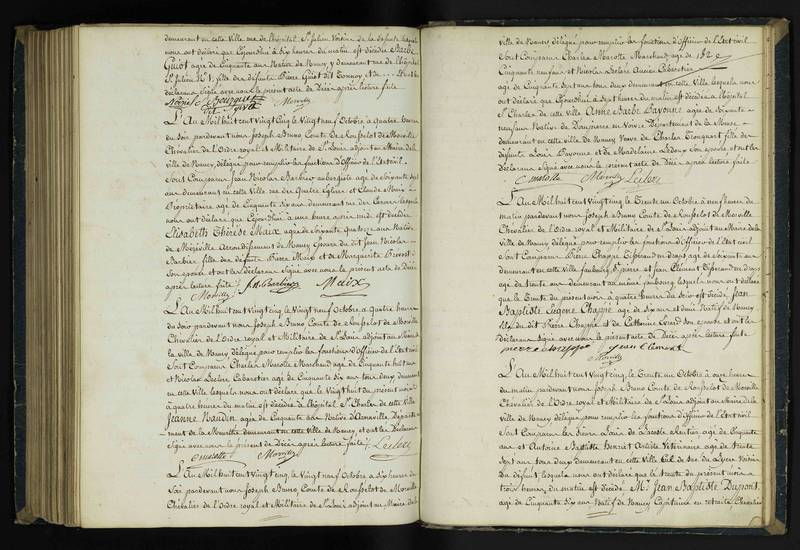 demeurant en cette Ville rue de l'hôpital St Julien Voisine de la défunte lesquels
nous ont déclaré que Cejourd'hui à Six heures du matin est décédée Barbe
Guiot agée de Cinquante ans Native de Nancy y demeurant rue de l'hôpital
St Julien No 1, fille des défunts Pierre Guiot dit
déclarans Signé avec nous le présent acte de Décès après lecture faite
L'An Mil huit cent Vingt Cinq le Vingt neuf Octobre à quatre heures
du Soir pardevant nous Joseph Bruno Comte de Rousselot de Morville
Chevalier de l'Ordre royal et Militaire de St Louis adjoint au Maire de la
ville de Nancy, délégué pour remplir les fonctions d'Officier de l'Etat Civil
Sont Comparus Jean Nicolas Barbier aubergiste agé de Soixante dix
ans demeurant en cette Ville rue des Quatre Eglises et Claude Maix
Propriétaire agé de Cinquante Six ans demeurant rue des
nous ont déclaré que Cejourd'hui à une heure après midi est décédée
Elisabeth Thérèse Maix agée de Soixante Quatorze ans Native
de Méréville Arrondissement de Nancy Epouse du dit Jean Nicolas
Barbier fille des défunts Pierre Maix et de Marguerite Prevost
Son épouse et ont les déclarans Signé avec nous le présent acte de Décès
après lecture faite
Morville Maix
L'An Mil huit cent Vingt Cinq le Vingt neuf Octobre à quatre heures
du Soir pardevant nous Joseph Bruno Comte de Rousselot de Morville
Chevalier de l'Ordre royal et Militaire de St Louis adjoint au Maire de
la ville de Nancy délégué pour remplir les fonctions d'Officier de l'Etat Civil
Sont Comparus Charles Marotte Marchand agé de Cinquante huit ans
et Nicolas Leclerc Cabaretier agé de Cinquante Six ans tous deux demeurant
en cette Ville lesquels nous ont déclaré que le Vingt huit du présent mois
à quatre heures du matin est décédée à l'hôpital St Charles de cette Ville
Jeanne Naudin agée de Cinquante ans Native d'Arnaville Départe
-ment de la Moselle demeurant en cette Ville de Nancy et ont les Déclarans
Signé avec nous le présent de Décès après lecture faite
Cmarotte Morville Leclerc
L'An Mil huit cent Vingt Cinq, le Vingt neuf Octobre à Six heures du
Soir pardevant nous Joseph Bruno, Comte de Rousselot de Morville
Chevalier de l'Ordre royal et Militaire de St Louis adjoint au Maire de la
ville de Nancy, délégué pour remplir les fonctions d'Officier de l'Etat Civil
Sont Comparus Charles Marotte Marchand agé de
Cinquante neuf ans et Nicolas Leclerc Ancien Cabaretier
agé de Cinquante Sept ans tous deux demeurant en cette Ville lesquels nous
ont déclaré que Cejourd'hui à Sept heures du matin est décédée à l'hôpital
St Charles de cette Ville Anne Barbe Bavonne agée de Soixante
neuf ans Native de Dompierre en Voivre Département de la Meuse
demeurant en cette Ville de Nancy Veuve de Charles Tronquart fille des
défunts Louis Bavonne et de Madelaine Ledoux Son épouse et ont les
déclarans Signé avec nous le présent acte de Décès après lecture faite
Cmarotte Morville Leclerc
L'An Mil huit cent Vingt Cinq le Trente un Octobre à neuf heures du
matin pardevant nous Joseph Bruno Comte de Rousselot de Morville
Chevalier de l'Ordre royal et Militaire de St Louis adjoint au Maire de la
Ville de Nancy, délégué pour remplir les fonctions d'Officier de l'Etat Civil
Sont Comparus Pierre Chappé Tisserand en draps agé de Soixante ans
demeurant en cette Ville faubourg St pierre et Jean Clément Tisserand en draps
agé de trente ans demeurant au même faubourg, lesquels nous ont déclaré
que le Trente du présent mois à quatre heures du Soir est décédé Jean
Baptiste Eugène Chappé agé de Six ans et demi Natif de Nancy
fils du dit Pierre Chappé et de Catherine Son épouse et ont les
Déclarans Signé avec nous le présent acte de Décès après lecture faite
jean Clement
Morville
L'An Mil huit cent Vingt Cinq, le Trente un Octobre à onze heures
du matin pardevant nous Joseph Bruno Comte de Rousselot de Morville
Chevalier de l'Ordre royal et Militaire de St Louis adjoint au Maire de la
Ville de Nancy délégué pour remplir les fonctions d'Officier de l'Etat Civil
Sont Comparus les Sieurs Louis de Lacoste Rentier agé de Cinquante
ans et Antoine Baptiste Artiste Vétérinaire agé de trente
Sept ans tous deux demeurant en cette Ville Cul de Sac du Lycée Voisins
Du défunt, lesquels nous ont déclaré que le trente du présent mois à
trois heures du matin est décédé Mr Jean Baptiste Dupont
agé de Cinquante Six ans Natif de Nancy Capitaine en retraite Chevalier